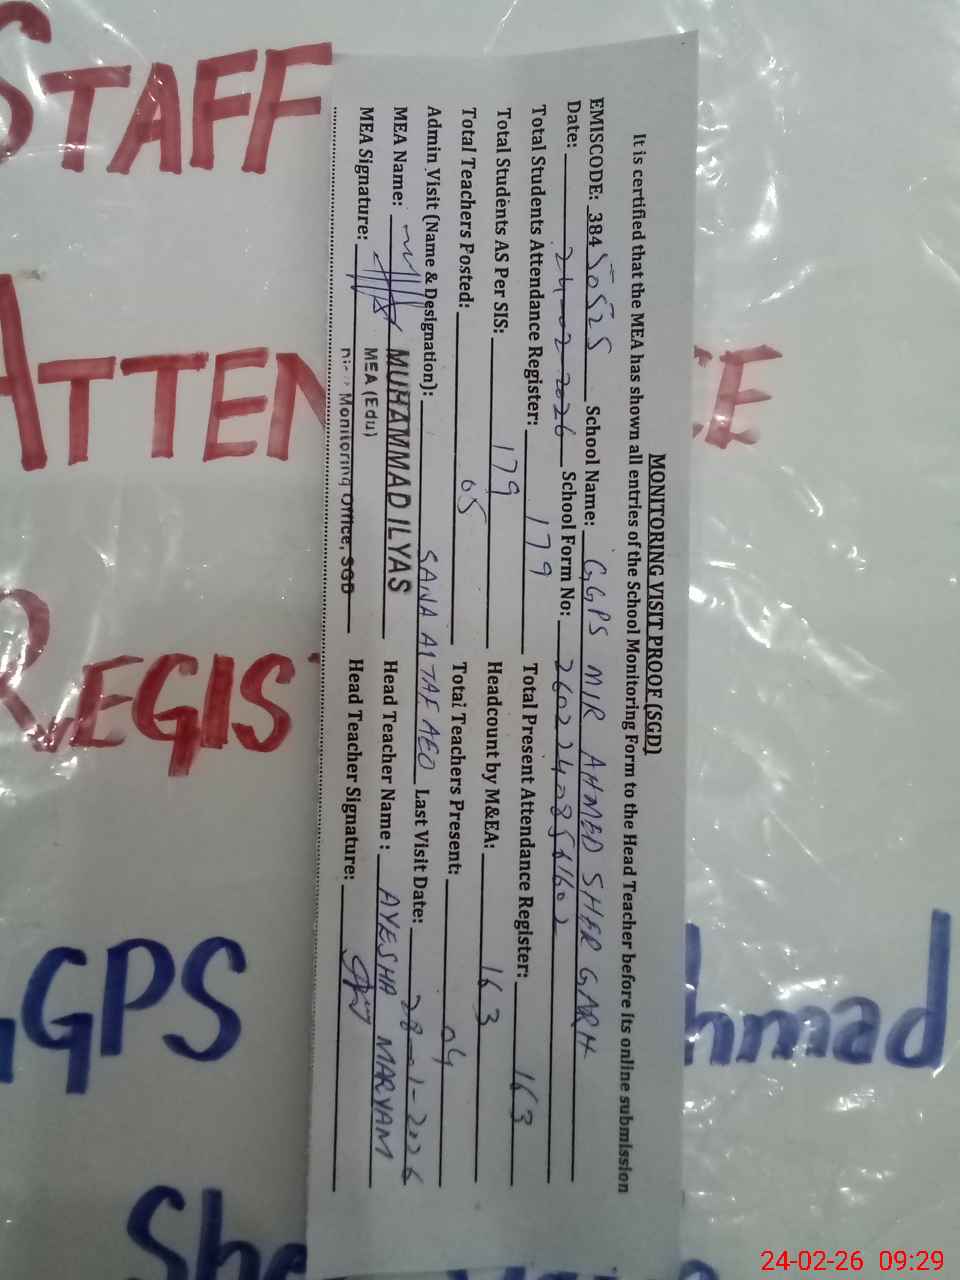 STAFF
ATTEN CE
REGIS
GGPS hmad
She
MONITORING VISIT PROOF (SGD)
It is certified that the MEA has shown all entries of the School Monitoring Form to the Head Teacher before its online submission
EMISCODE: 38450525 School Name: GGPS MIR AHMED SHER GARH
Date: 24-02-2026 School Form No:
Total Students Attendance Register: 179 Total Present Attendance Register: 163
Total Students AS Per SIS: 179 Headcount by M&EA: 163
Total Teachers Posted: 05 Total Teachers Present: 04
Admin Visit (Name & Designation): SANA ALTAF AEO Last Visit Date: 28-01-2026
MEA Name: MUHAMMAD ILYAS Head Teacher Name : AYESHA MARYAM
MEA (Edu)
MEA Signature: Monitoring Office, SGD Head Teacher Signature:
24-02-26 09:29